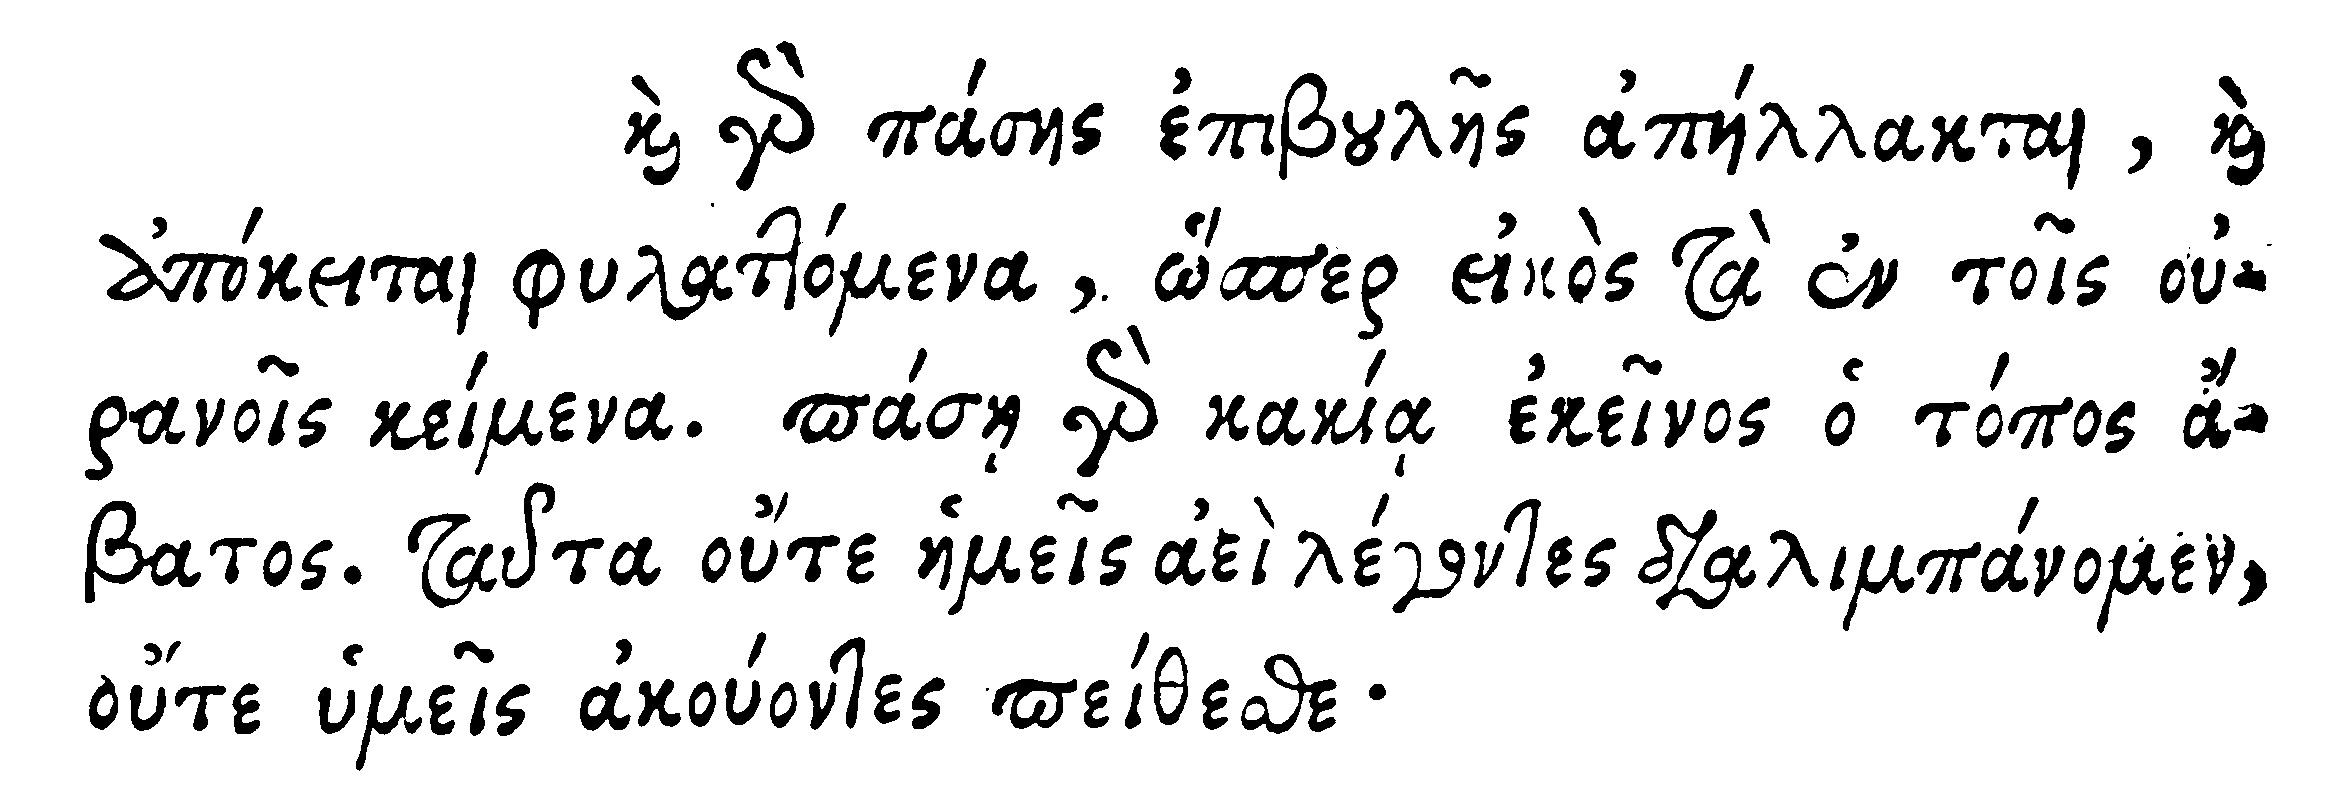 καὶ γὰρ πάσης ἐπιβουλῆς ἀπήλλακται, καὶ
ἀπόκειται φυλαττόμενα, ὥσπερ εἰκὸς τὰ ἐν τοῖς οὐ-
ρανοῖς κείμενα. πάσῃ γὰρ κακίᾳ ἐκεῖνος ὁ τόπος ἄ-
βατος. ταῦτα οὔτε ἡμεῖς ἀεὶ λέγοντες διαλιμπάνομεν,
οὔτε ὑμεῖς ἀκούοντες πείθεσθε.